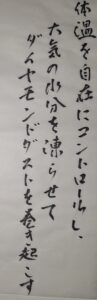 体温を自在にコントロールし、
大気の水分を凍らせて
ダイヤモンドダストを巻き起こす